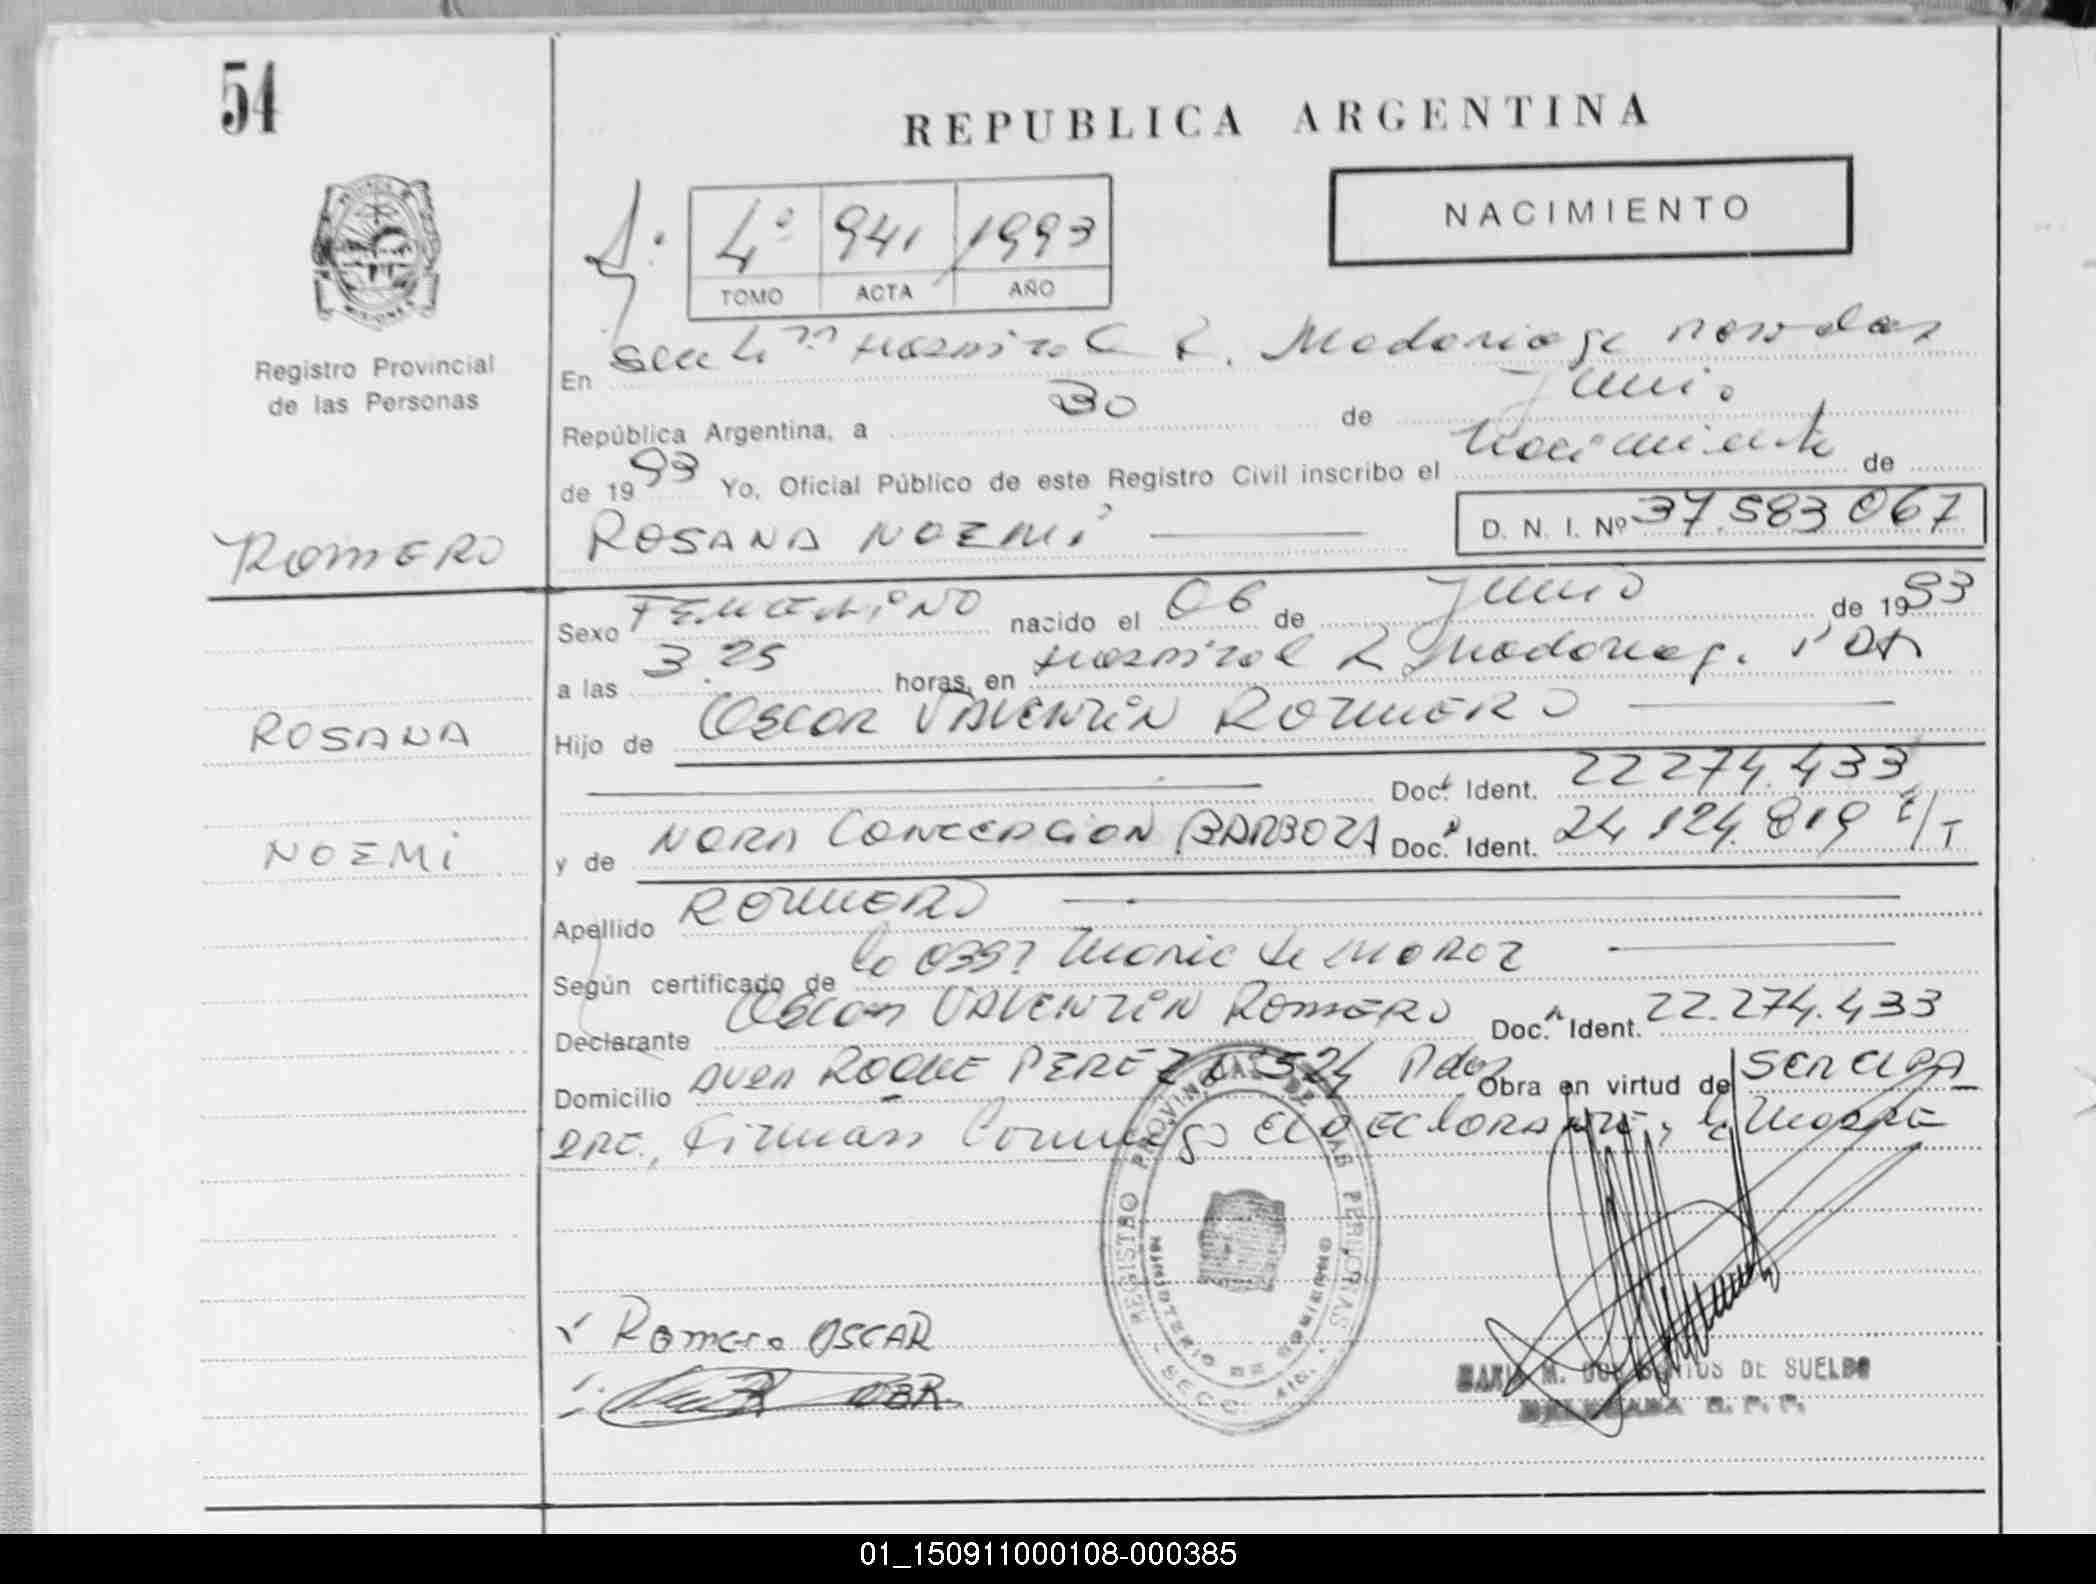 54
REPUBLICA ARGENTINA
4º 941 1993
TOMO ACTA AÑO
NACIMIENTO
MISIONES
Registro Provincial
de las Personas
En Secc 4ta Hospital R. Madariaga Posadas
República Argentina, a 30 de Junio
de 1993 Yo, Oficial Público de este Registro Civil inscribo el Nacimiento de
ROMERO ROSANA NOEMÍ D. N. I. Nº 37.583.067
Sexo FEMENINO nacido el 06 de Junio de 1993
a las 3.25 horas, en Hospital R Madariaga. Pdas
ROSANA
Hijo de OSCAR VALENTIN ROMERO
Doc. Ident. 22.274.433
NOEMI
y de NORA CONCEPCION BARBOZA Doc. Ident. 24.124.819
Apellido ROMERO
Según certificado de la Obst Maria de MOROZ
Declarante OSCAR VALENTIN ROMERO Doc. Ident. 22.274.433
Domicilio AVDA ROQUE PEREZ Nº 524 Pdas Obra en virtud de
Firman Conmigo el DEClarante y la Madre
REGISTRO PROVINCIAL DE LAS PERSONAS
MINISTERIO DE GOBIERNO
Romero OSCAR
MARIA M. DOS SANTOS DE SUELDO
DELEGADA R. P. P.
01_150911000108-000385